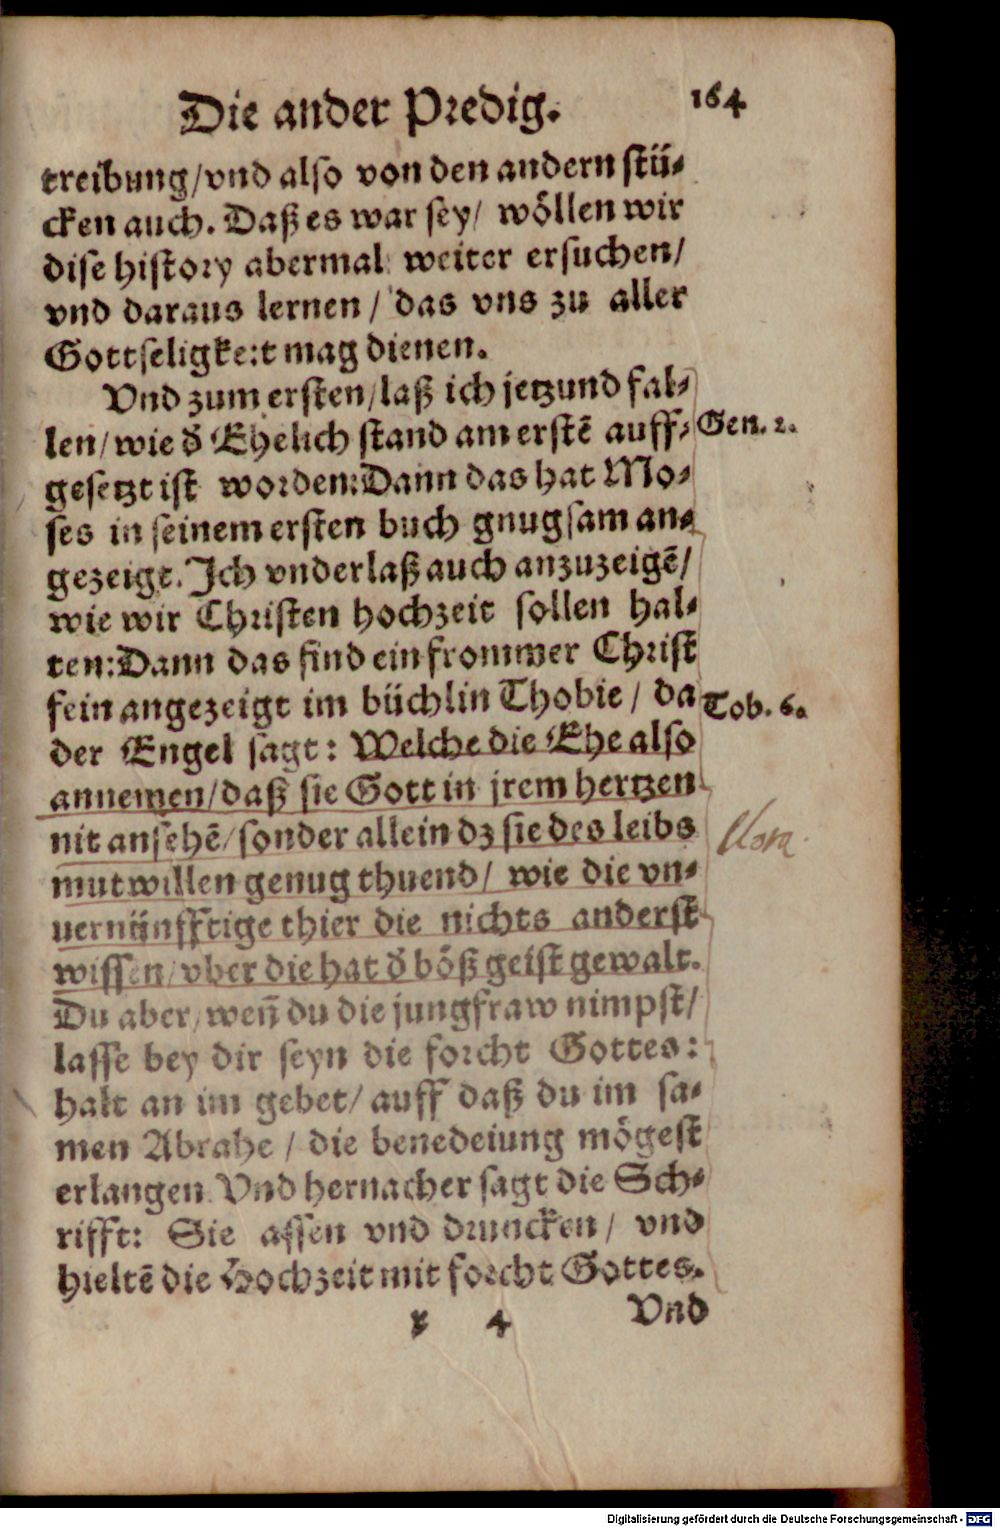 Die ander Predig. 164
treibung/vnd also von den andern stü⸗
cken auch. Daß es war sey/ wöllen wir
dise history abermal weiter ersuchen/
vnd daraus lernen/ das vns zu aller
Gottseligkeit mag dienen.
Vnd zum ersten/laß ich jetzund fal⸗
len/wie d̕ Ehelich stand am erstē auff⸗ Gen. 2.
gesetzt ist worden: Dann das hat Mo⸗
ses in seinem ersten buch gnugsam an⸗
gezeigt. Ich vnderlaß auch anzuzeigē/
wie wir Christen hochzeit sollen hal⸗
ten: Dann das find ein frommer Christ
fein angezeigt im büchlin Thobie/ da Tob. 6.
der Engel sagt: Welche die Ehe also
annemen/daß sie Gott in jrem hertzen
nit ansehē/sonder allein dz sie des leibs
mutwillen genug thuend/ wie die vn⸗
uernünfftige thier die nichts anderst
wissen/vber die hat d̕ böß geist gewalt.
Du aber/ weñ du die jungfraw nimpst/
lasse bey dir seyn die forcht Gottes:
halt an im gebet/ auff daß du im sa⸗
men Abrahe/ die benedeiung mögest
erlangen. Vnd hernacher sagt die Sch⸗
rifft: Sie assen vnd druncken/ vnd
hieltē die Hochzeit mit forcht Gottes.
x 4 Vnd
Digitalisierung gefördert durch die Deutsche Forschungsgemeinschaft - DFG